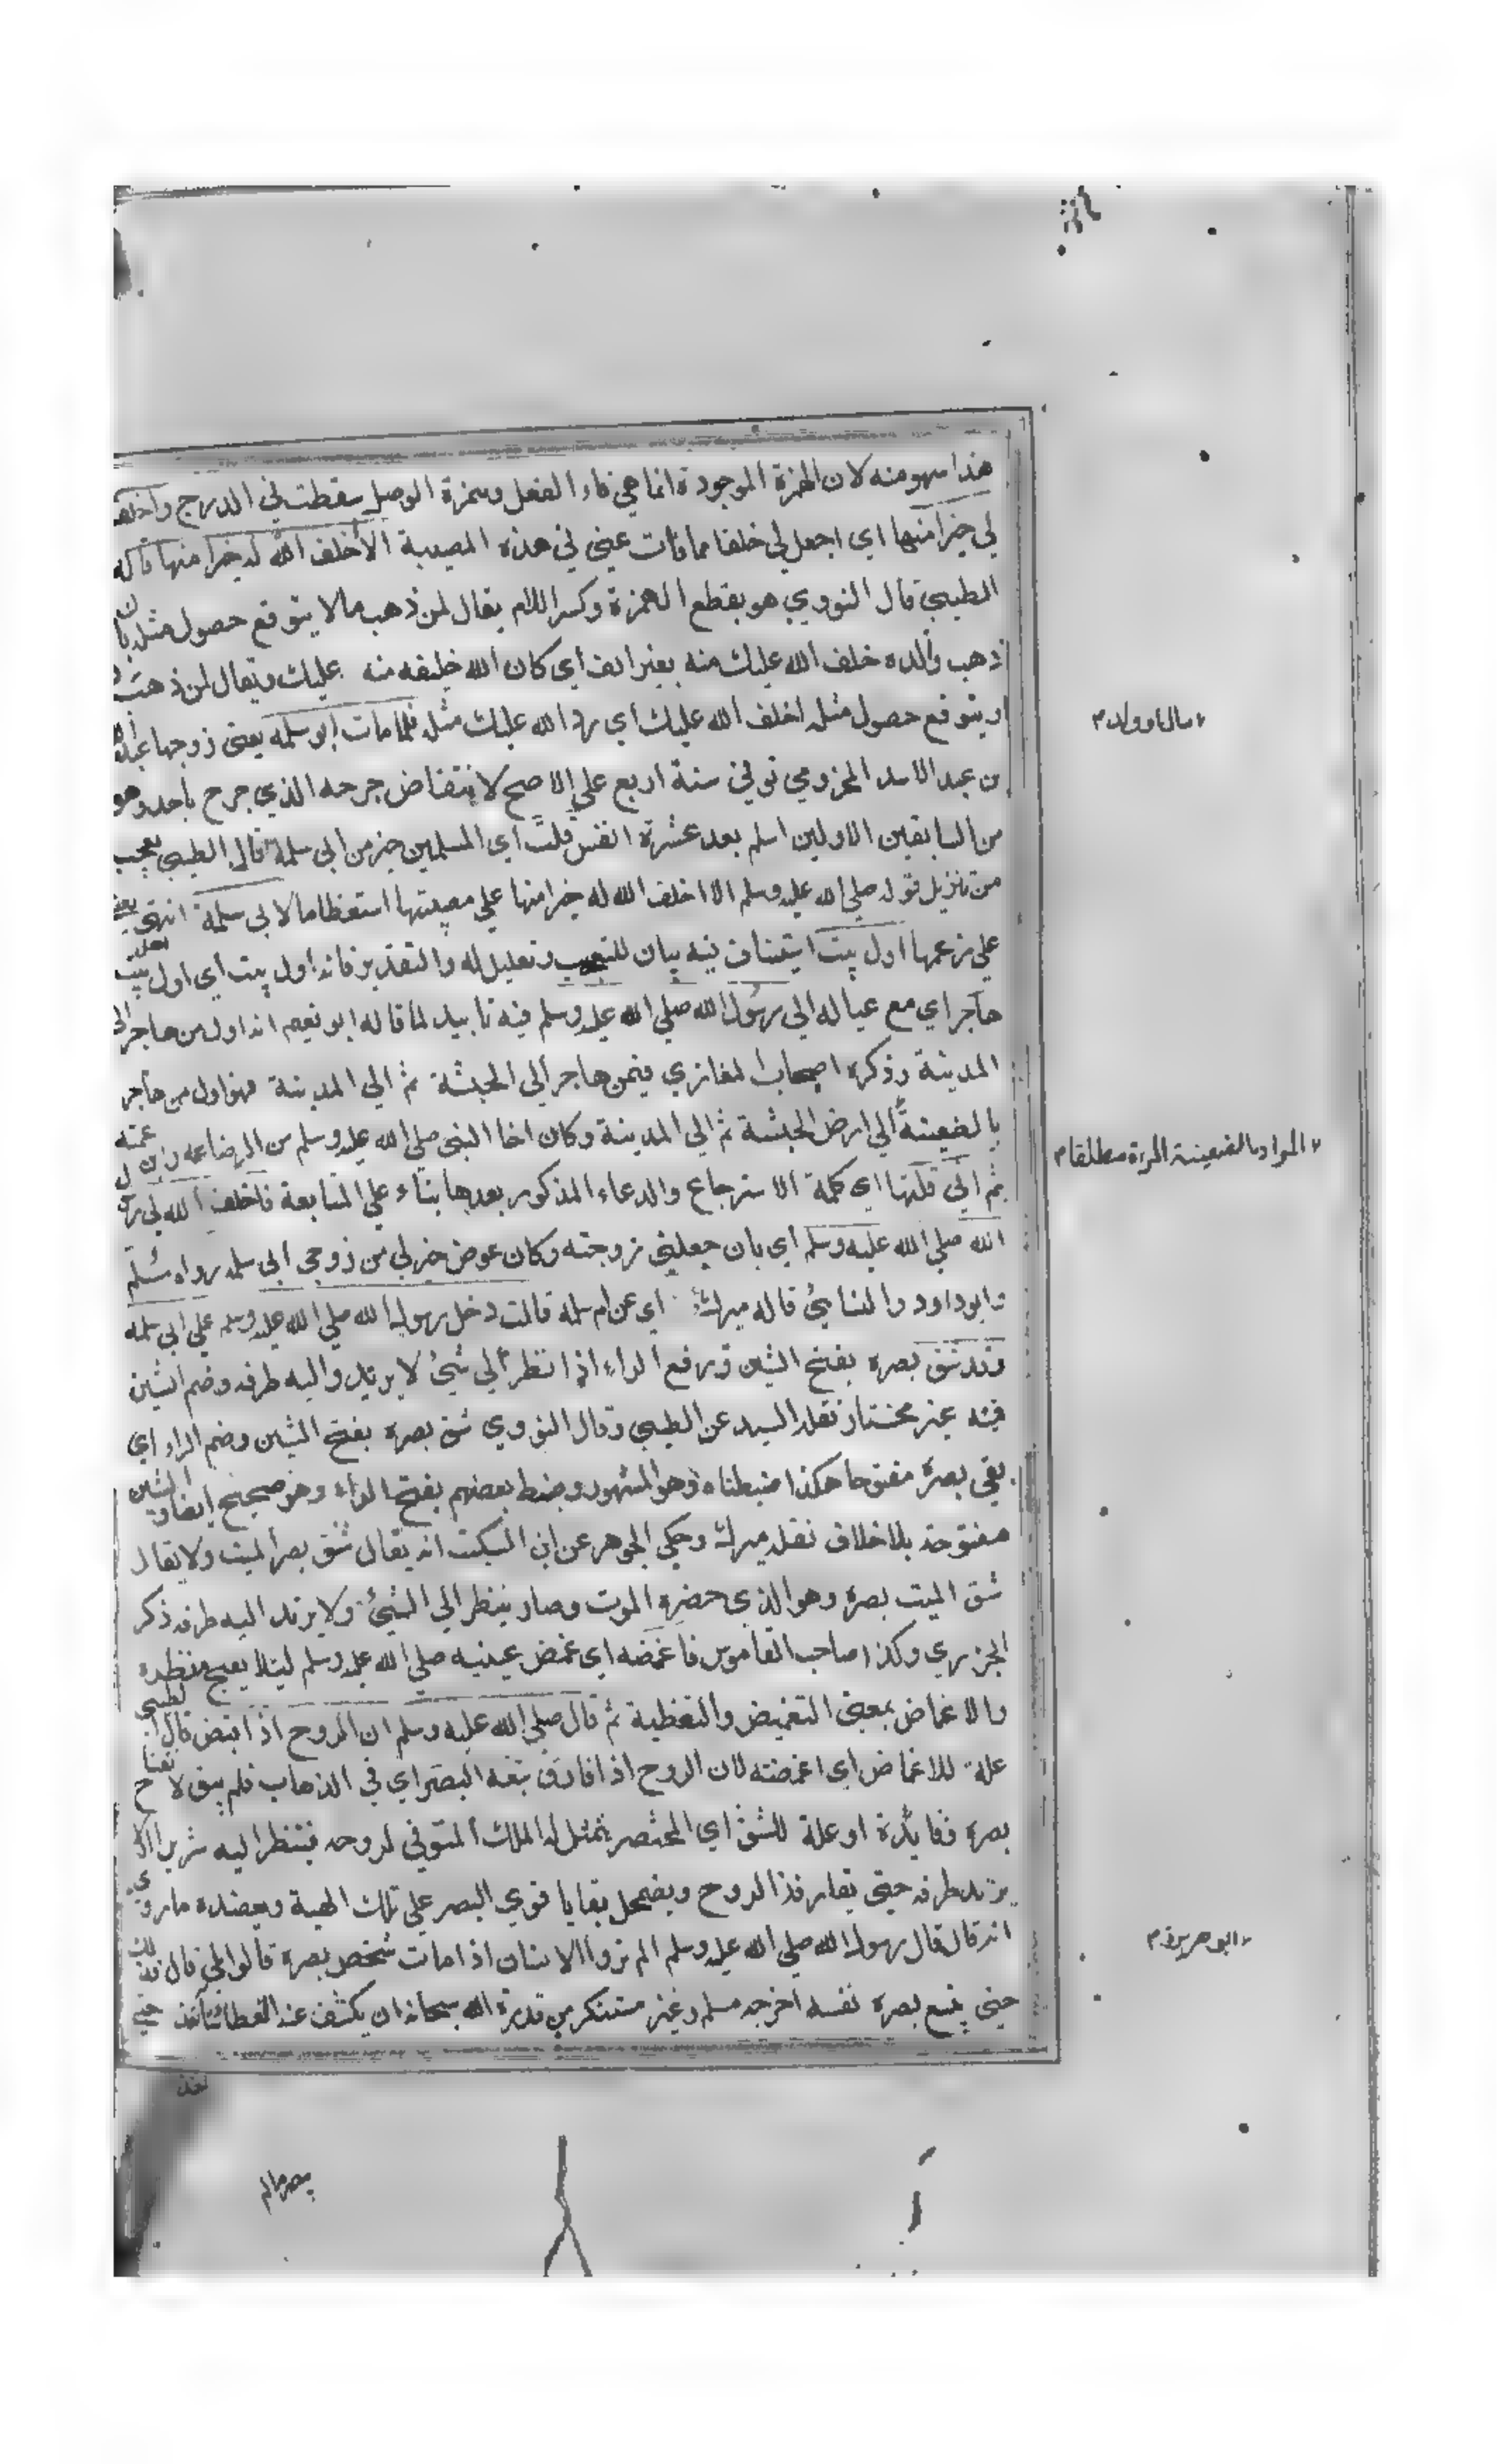 هذا سهو منه لان الهمزة الموجودة انما هي فاء الفعل وهمزة الوصل سقطت في الدرج واخلف
لي خيرا منها اي اجعل لي خلفا مما فات عني في هذه المصيبة الا أخلف الله له خيرا منها قاله
الطيبي قال النووي هو بقطع الهمزة وكسر اللام يقال لمن ذهب مالا يتوقع حصول مثله بان
ذهب والده خلف الله عليك منه بغير الف اي كان الله خليفه منه عليك ويقال لمن ذهب
او يتوقع حصول مثله اخلف الله عليك اي رد الله عليك مثله فلما مات ابو سلمة يعني زوجها عبد الله
بن عبد الاسد المخزومي توفي سنة اربع علي الاصح لانتقاض جرحه الذي جرح باحد وهو
من السابقين الاولين اسلم بعد عشرة انفس قلت اي المسلمين خير من ابي سلمة قال الطيبي تعجب
من تنزيل قوله صلي الله عليه وسلم الا اخلف الله له خيرا منها علي مصيبتها استعظاما لابي سلمة انتهي يعني
علي زعمها اول بيت استيناف فيه بيان للتعجب وتعليل له والتقدير فانه اول بيت اي اول اهل بيت
هاجر اي مع عياله الي رسول الله صلي الله عليه وسلم فيه تاييد لما قاله ابو نعيم انه اول من هاجر الي
المدينة وذكره اصحاب المغازي فيمن هاجر الي الحبشة ثم الي المدينة فهو اول من هاجر
بالضعينة الي ارض الحبشة ثم الي المدينة وكان اخا النبي صلي الله عليه وسلم من الرضاعه وابن عمته
ثم اني قلتها اي كلمة الاسترجاع والدعاء المذكور بعدها بناء علي المتابعة فاخلف الله لي رسول
الله صلي الله عليه وسلم اي بان جعلني زوجته وكان عوض خير لي من زوجي ابي سلمه رواه مسلم
وابو داود والنسائي قاله ميرك اي عن ام سلمه قالت دخل رسول الله صلي الله عليه وسلم علي ابي سلمه
وقد شق بصره بفتح الشين ورفع الراء اذا نظر الي شيئ لا يرتد اليه طرفه وضم الشين
فيه غير مختار نقله السيد عن الطيبي وقال النووي شق بصره بفتح الشين وضم الراء اي
بقي بصره مفتوحا هكذا ضبطناه وهو المشهور وضبط بعضهم بفتح الراء وهو صحيح ايضا والشين
مفتوحة بلا خلاف نقله ميرك وحكي الجوهر عن ابن السكت انه يقال شق بصر الميت ولا يقال
شق الميت بصره وهو الذي حضره الموت وصار ينظر الي الشيئ ولا يرتد اليه طرفه ذكر
الجزري وكذا صاحب القاموس فاغمضه اي غمض عينيه صلي الله عليه وسلم ليلا يقبح منظره
والاغماض بمعني التغميض والتغطية ثم قال صلي الله عليه وسلم ان الروح اذا قبض قال الطيبي
علة للاغماض اي اغمضته لان الروح اذا فارق تبعه البصر اي في الذهاب فلم يبق لانفتاح
بصره فايدة او علة للشق اي المحتضر يتمثل له الملك المتوفي لروحه فينظر اليه شزرا لا
يرتد طرفه حتي يفارقه الروح ويضمحل بقايا قوي البصر علي تلك الهيئة ويعضده ما روي
انه قال قال رسول الله صلي الله عليه وسلم الم تروا الانسان اذا مات شخص بصره قالوا بلي قال فذلك
حين يتبع بصره نفسه اخرجه مسلم وغير مستنكر من قدرة الله سبحانه ان يكشف عنه الغطا ساعتئذ حتي
مالا او ولد م
المراد بالضعينة المرءة مطلقا م
ابو هريرة م